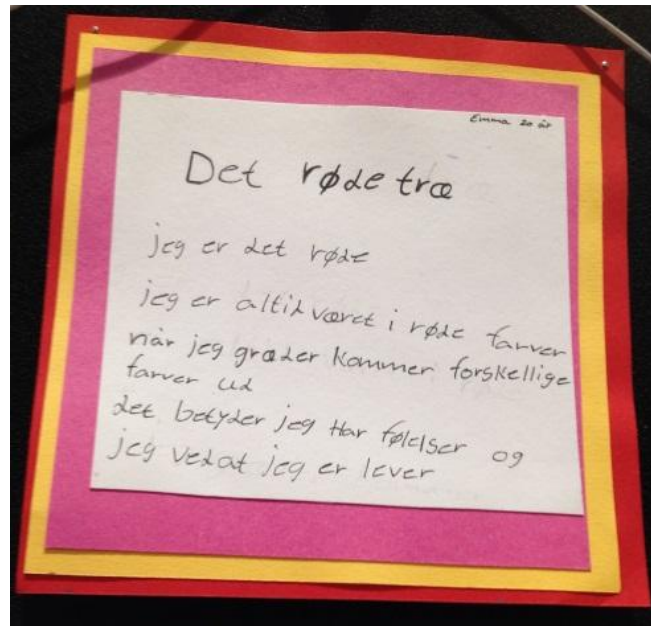 Emma 20 år
Det røde træ
jeg er det røde
jeg er altid været i røde farver
når jeg græder kommer forskellige
farver ud
det betyder jeg Har følelser og
jeg ved at jeg er lever